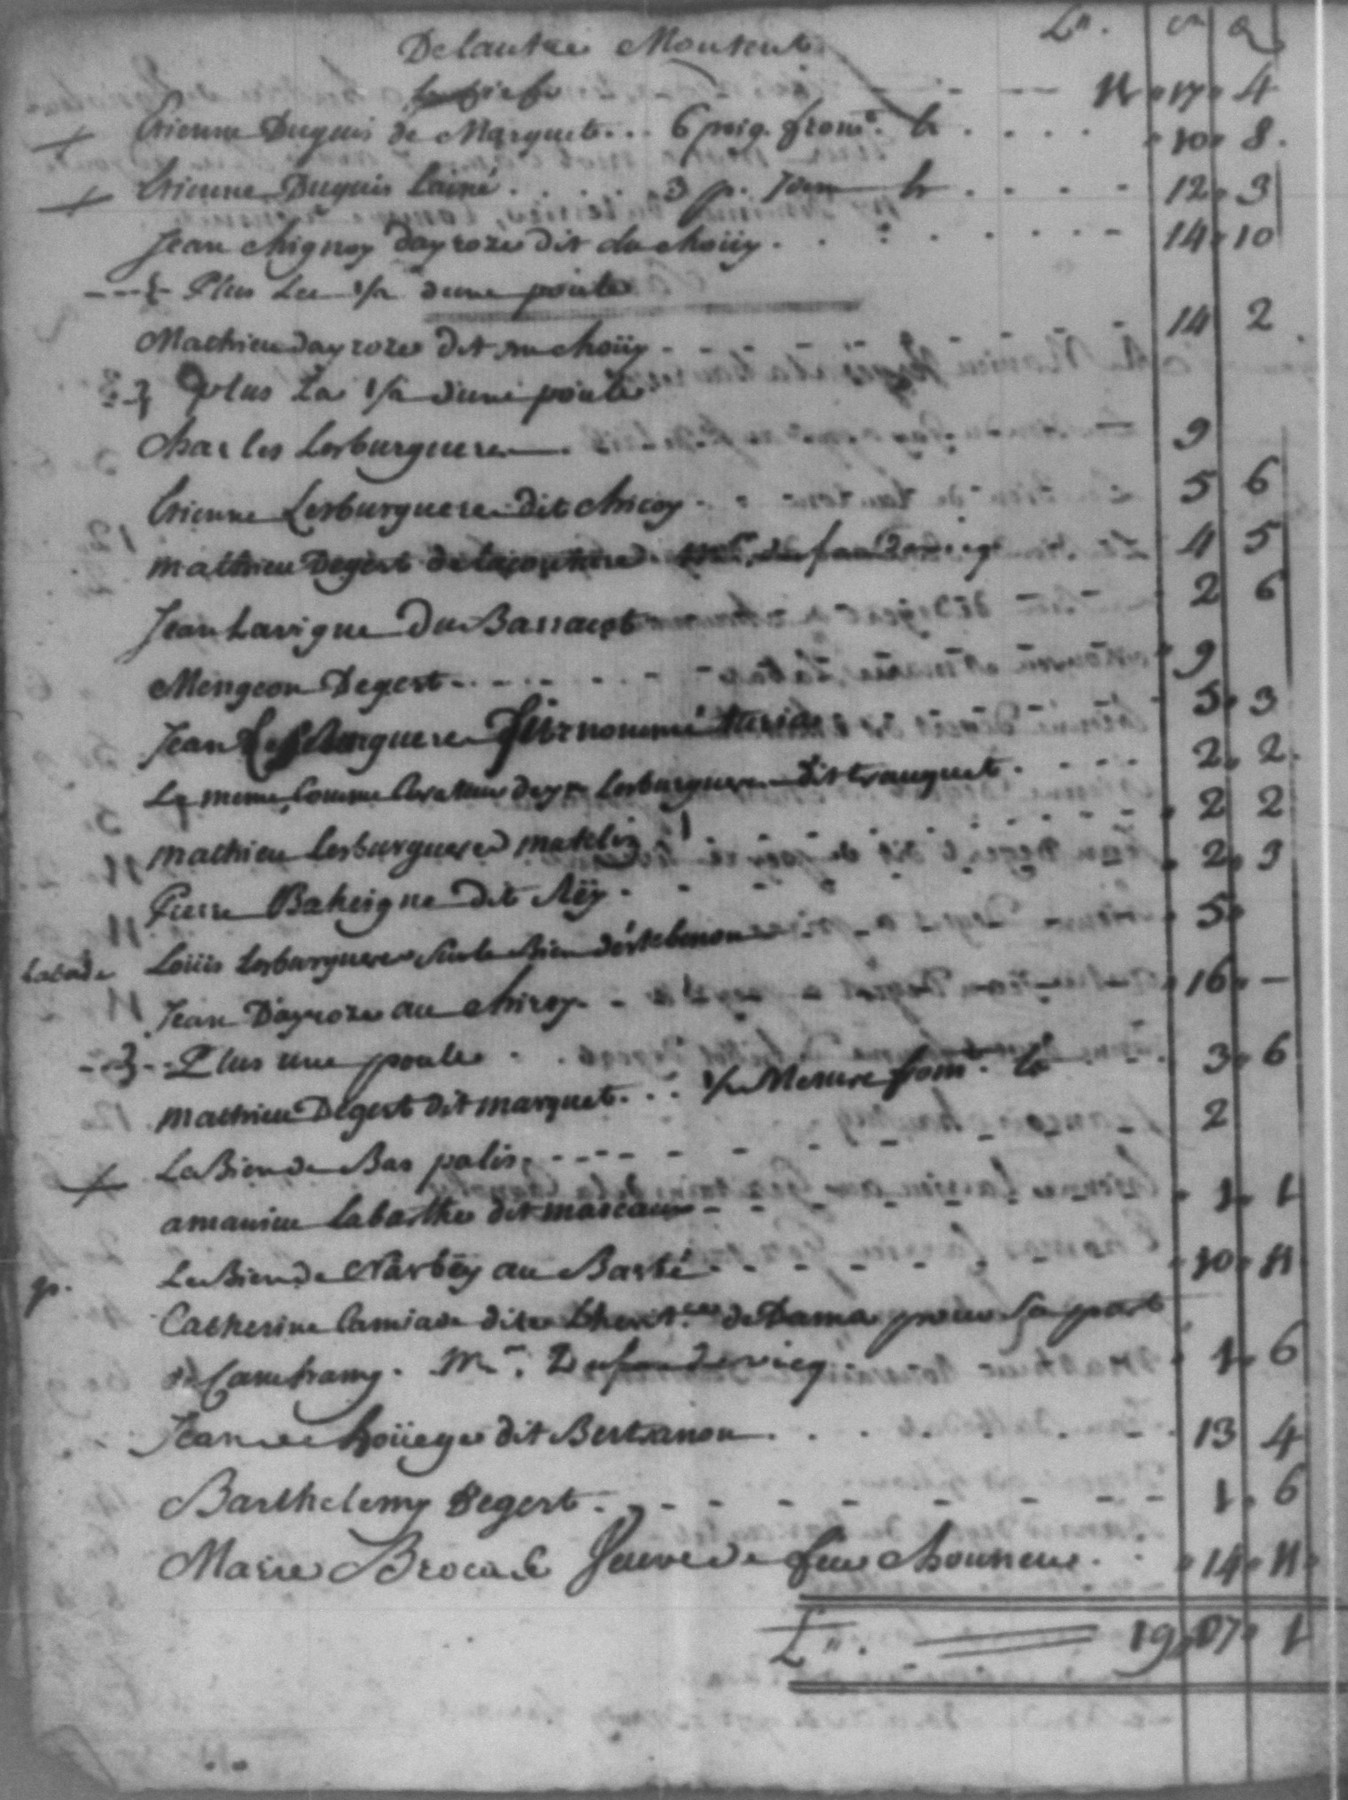 De lautre Montent 11 17 4
Etienne Duguis de Marquet... 6 poig. from.t 10 8
Etienne Duguis lainé 3 p. Idem 12 3
Jean chignoy dayroze dit du choüy 14 10
Plus Lee 1/2 dune poule
Mathieu dayroze dit au choüy 14 2
plus La 1/2 dune poule
Charles Lesburguere 9
Etienne Lesburguere dit chicoy 5 6
Mathieu Degert de lacouture 4 5
Jean Lavigne Du Barraept 2 6
Mengeon Degert 9
Jean Lesburguere surnommé 5 3
Le meme Comme Lesburguere dit trauquet 2 2
Mathieu Lesburguere 2 2
Pierre Baheigne dit Rëy 2 3
Labade Loüis Lesburguere sur le Bien destebenon 5
Jean Dayroze au chiroy 16 -
Plus une poule
Mathieu Degert dit marquet... 1/2 Mesure from.t 3 6
Le Bien de Bas palis 2
amanieu Labarthe dit mascaux 1 1
Le Bien de Narbëy au Barté 10 11
p. Catherine Camiade dite Lherit.ere de Dama pour Sa part
de Camhamy. Mr. Dufau de vicq 1 6
Jean de hoüeye dit Bertranon 13 4
Barthelemy Degert 1 6
Marie Brocas Veuve de feu chourreu 14 11
L.n 19 07 1